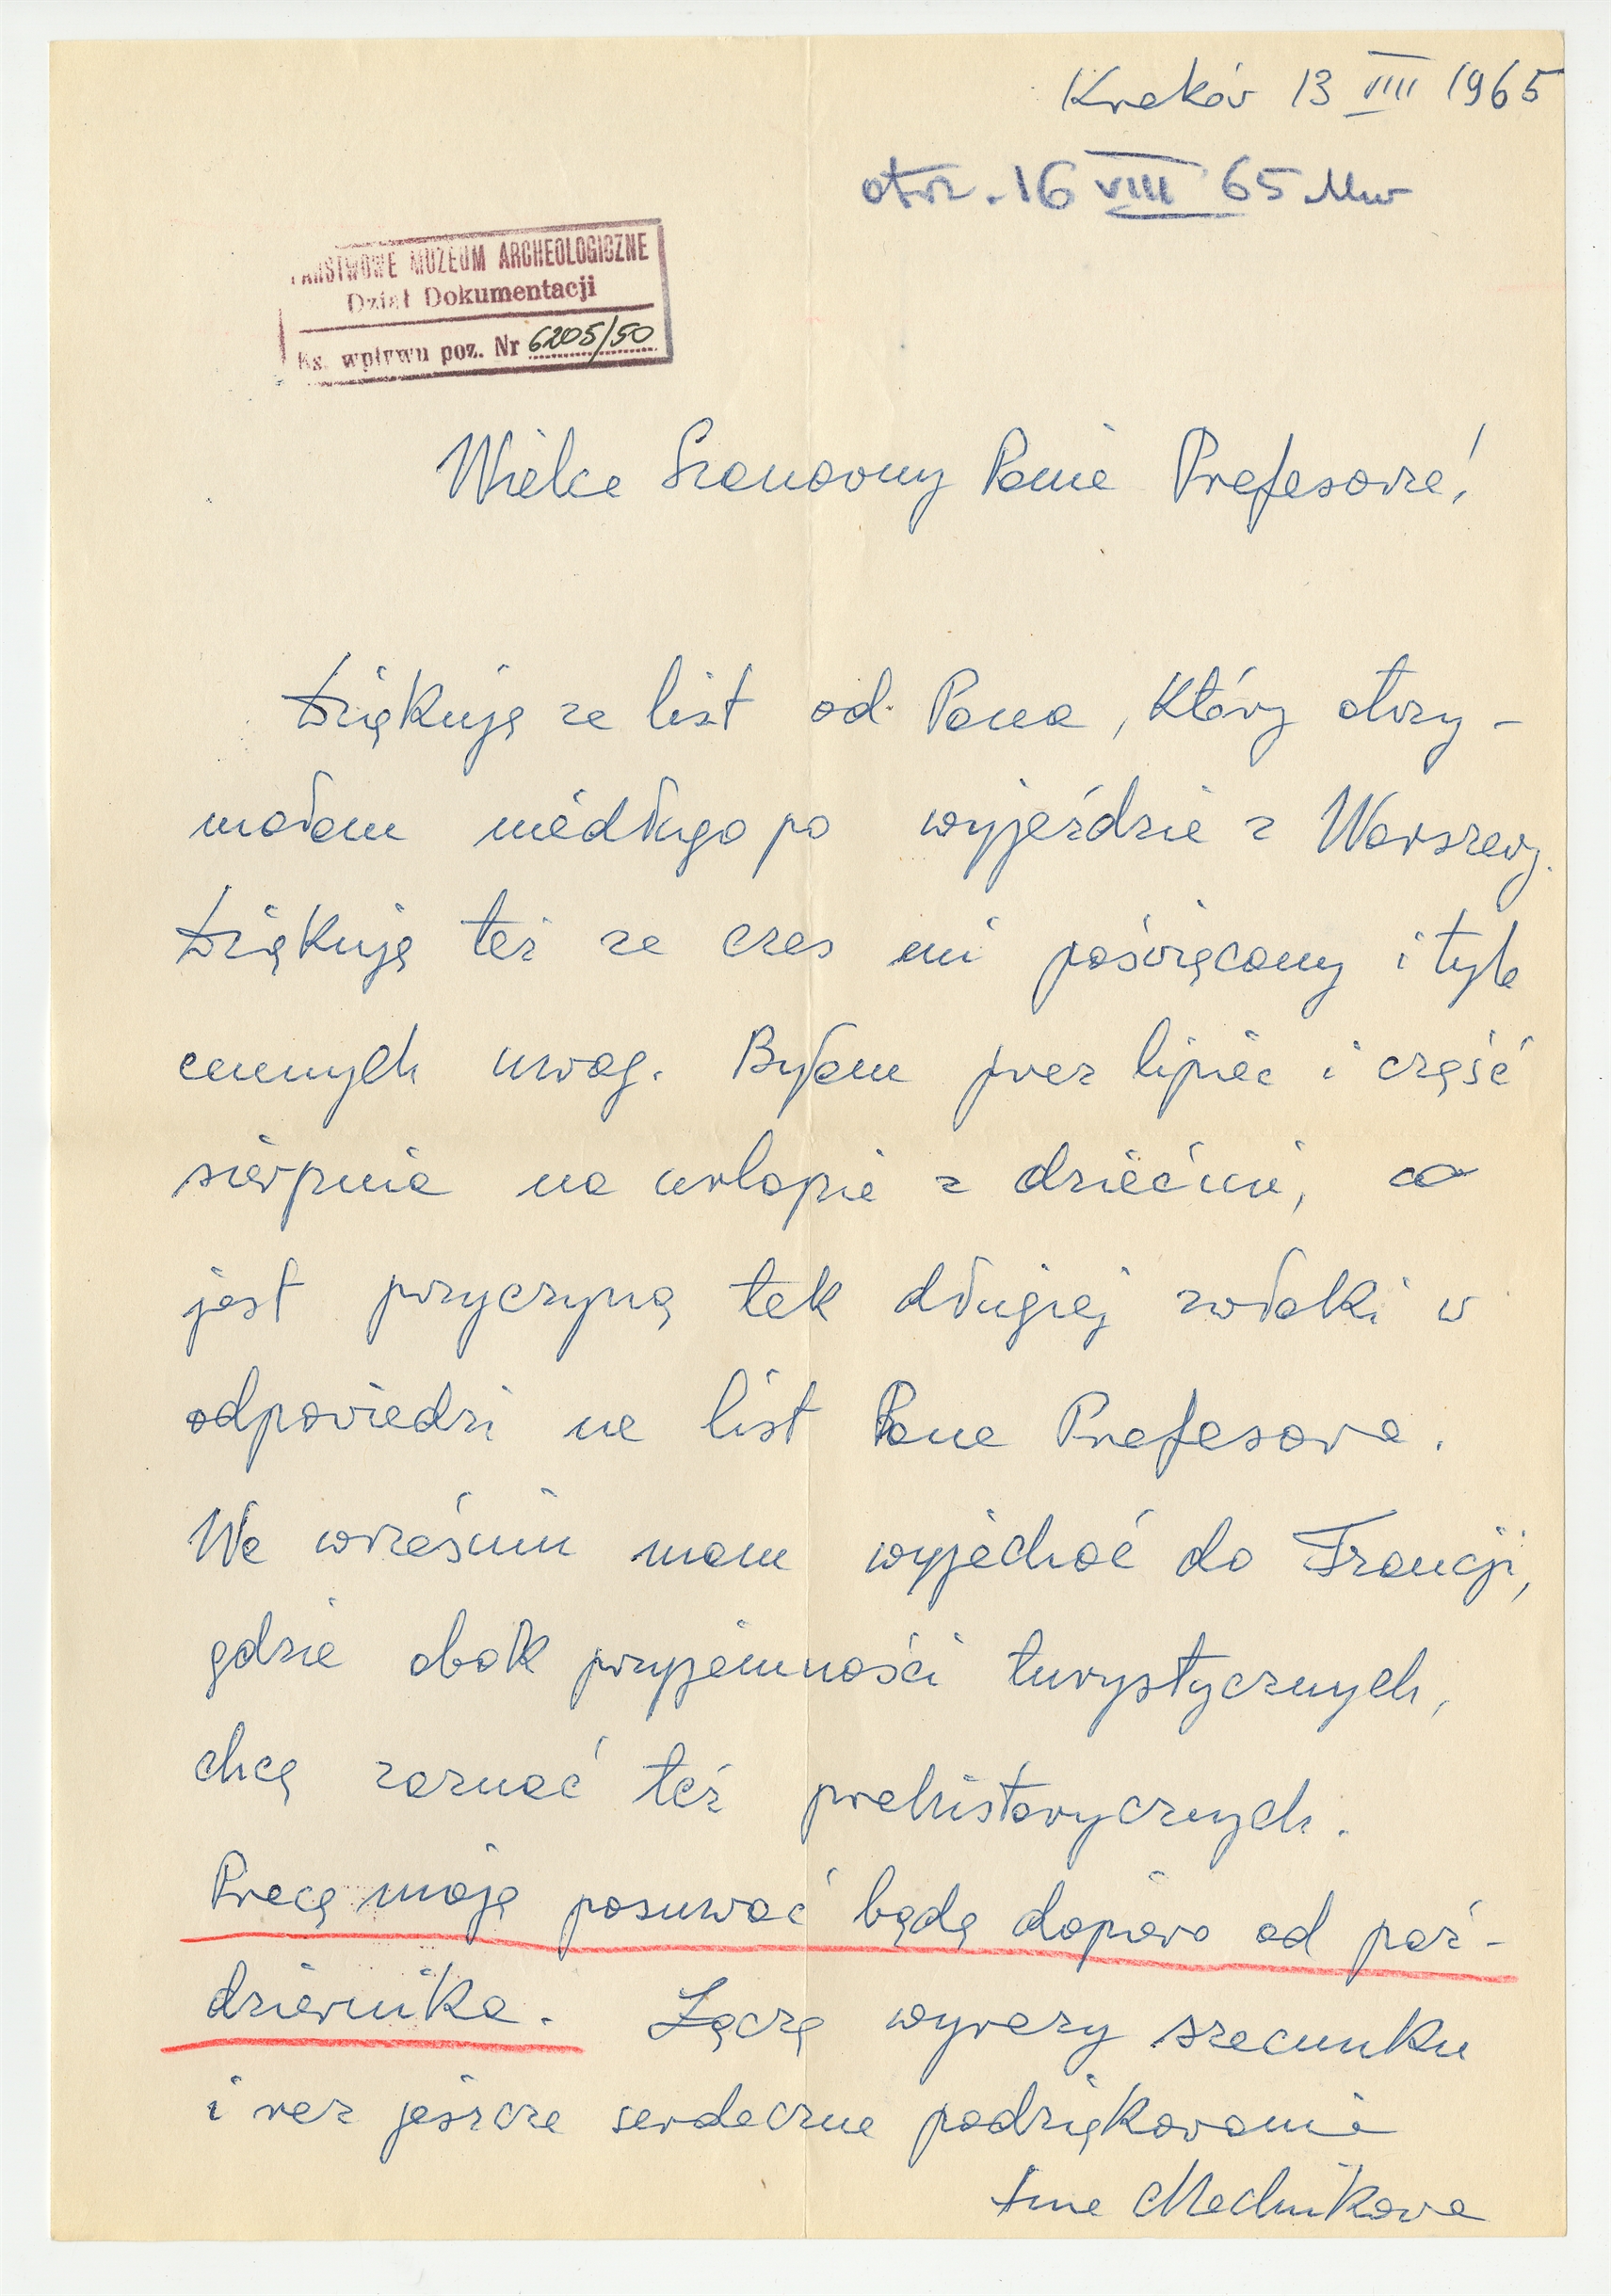 Kraków 13 VIII 1965
otrz. 16 VIII 65 Mw
PAŃSTWOWE MUZEUM ARCHEOLOGICZNE
Dział Dokumentacji
Ks. wpływu poz. Nr 6205/50
Wielce Szanowny Panie Profesorze!
Dziękuję za list od Pana, który otrzy-
małam niedługo po wyjeździe z Warszawy.
Dziękuję też za czas mi poświęcony i tyle
cennych uwag. Byłam przez lipiec i część
sierpnia na urlopie z dziećmi, co
jest przyczyną tak długiej zwłoki w
odpowiedzi na list Pana Profesora.
We wrześniu mam wyjechać do Francji,
gdzie obok przyjemności turystycznych,
chcę zaznać też prehistorycznych.
Pracę moją posuwać będę dopiero od paź-
dziernika. Łączę wyrazy szacunku
i raz jeszcze serdeczne podziękowania
Anna Machnikowa